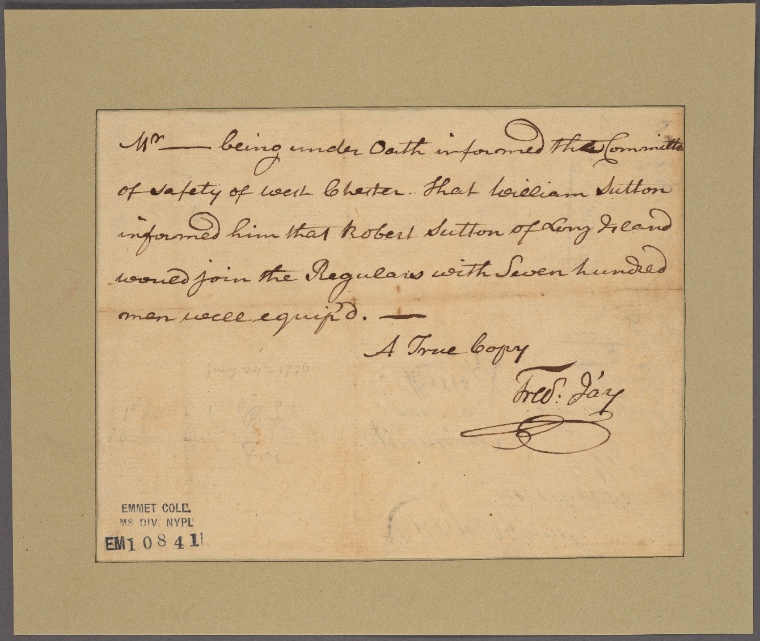 Mr — being under Oath informed the Committe
of safety of west Chester. that William Sutton
informed him that Robert Sutton of Long Island
would join the Regulars with Seven hundred
men well equip'd. —
A True Copy
Fred: Jay
EMMET COLL.
MS. DIV. NYPL
EM10841